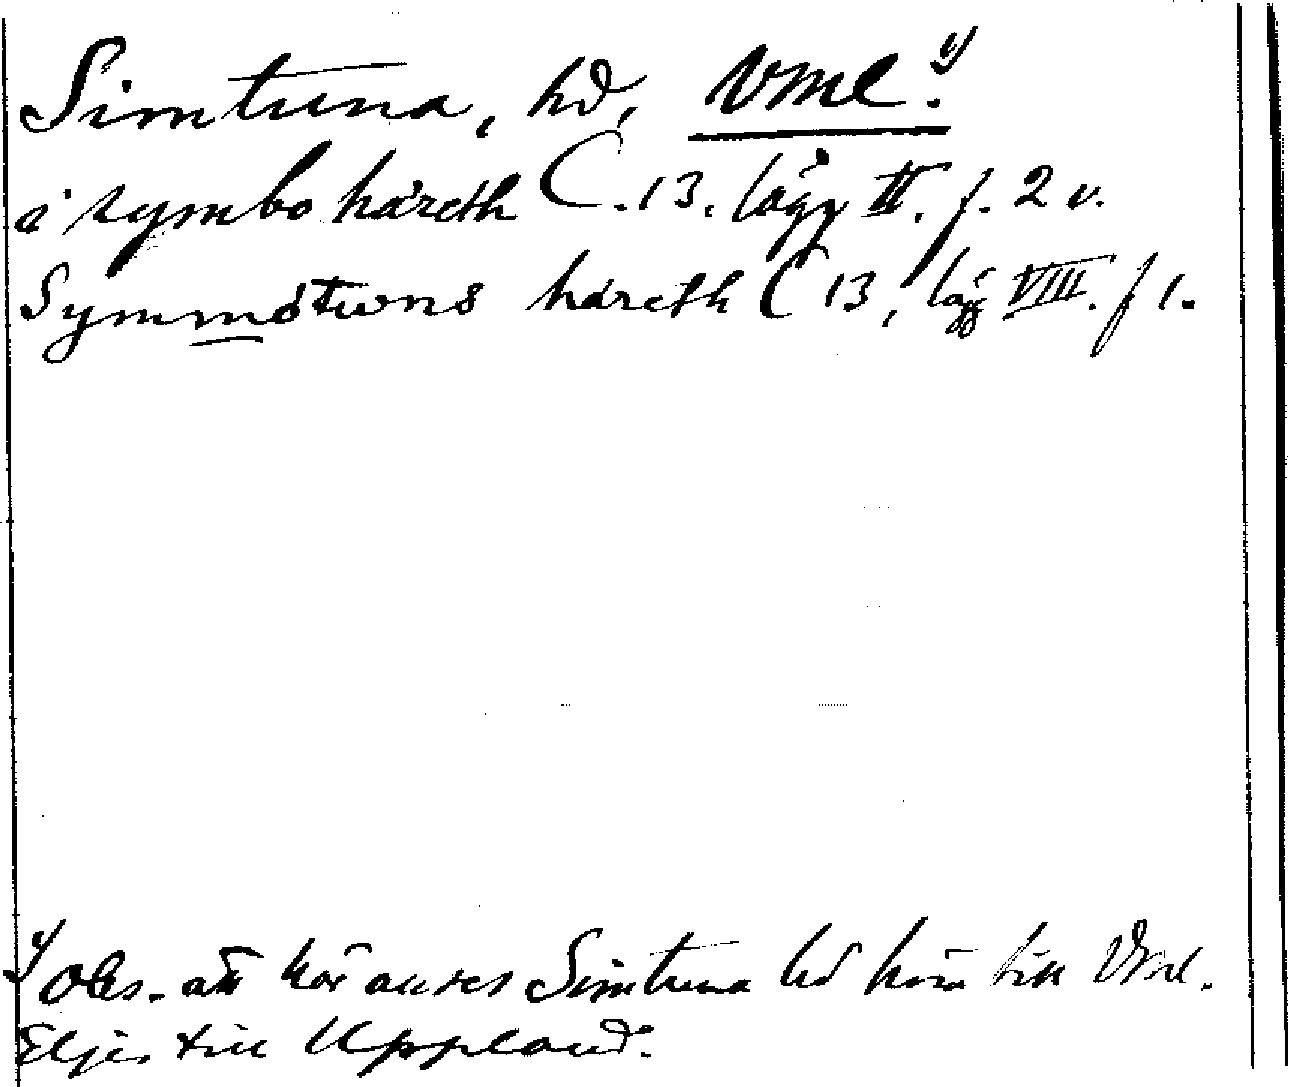 Simtuna, hd, Vml. y
i symbo häreth C. 13. lägg II. f. 2 v.
Symmötuns häreth C 13, lägg VIII. f 1.
y obs. att här anses Simtuna hd höra till Vml.
Eljes till Uppland.